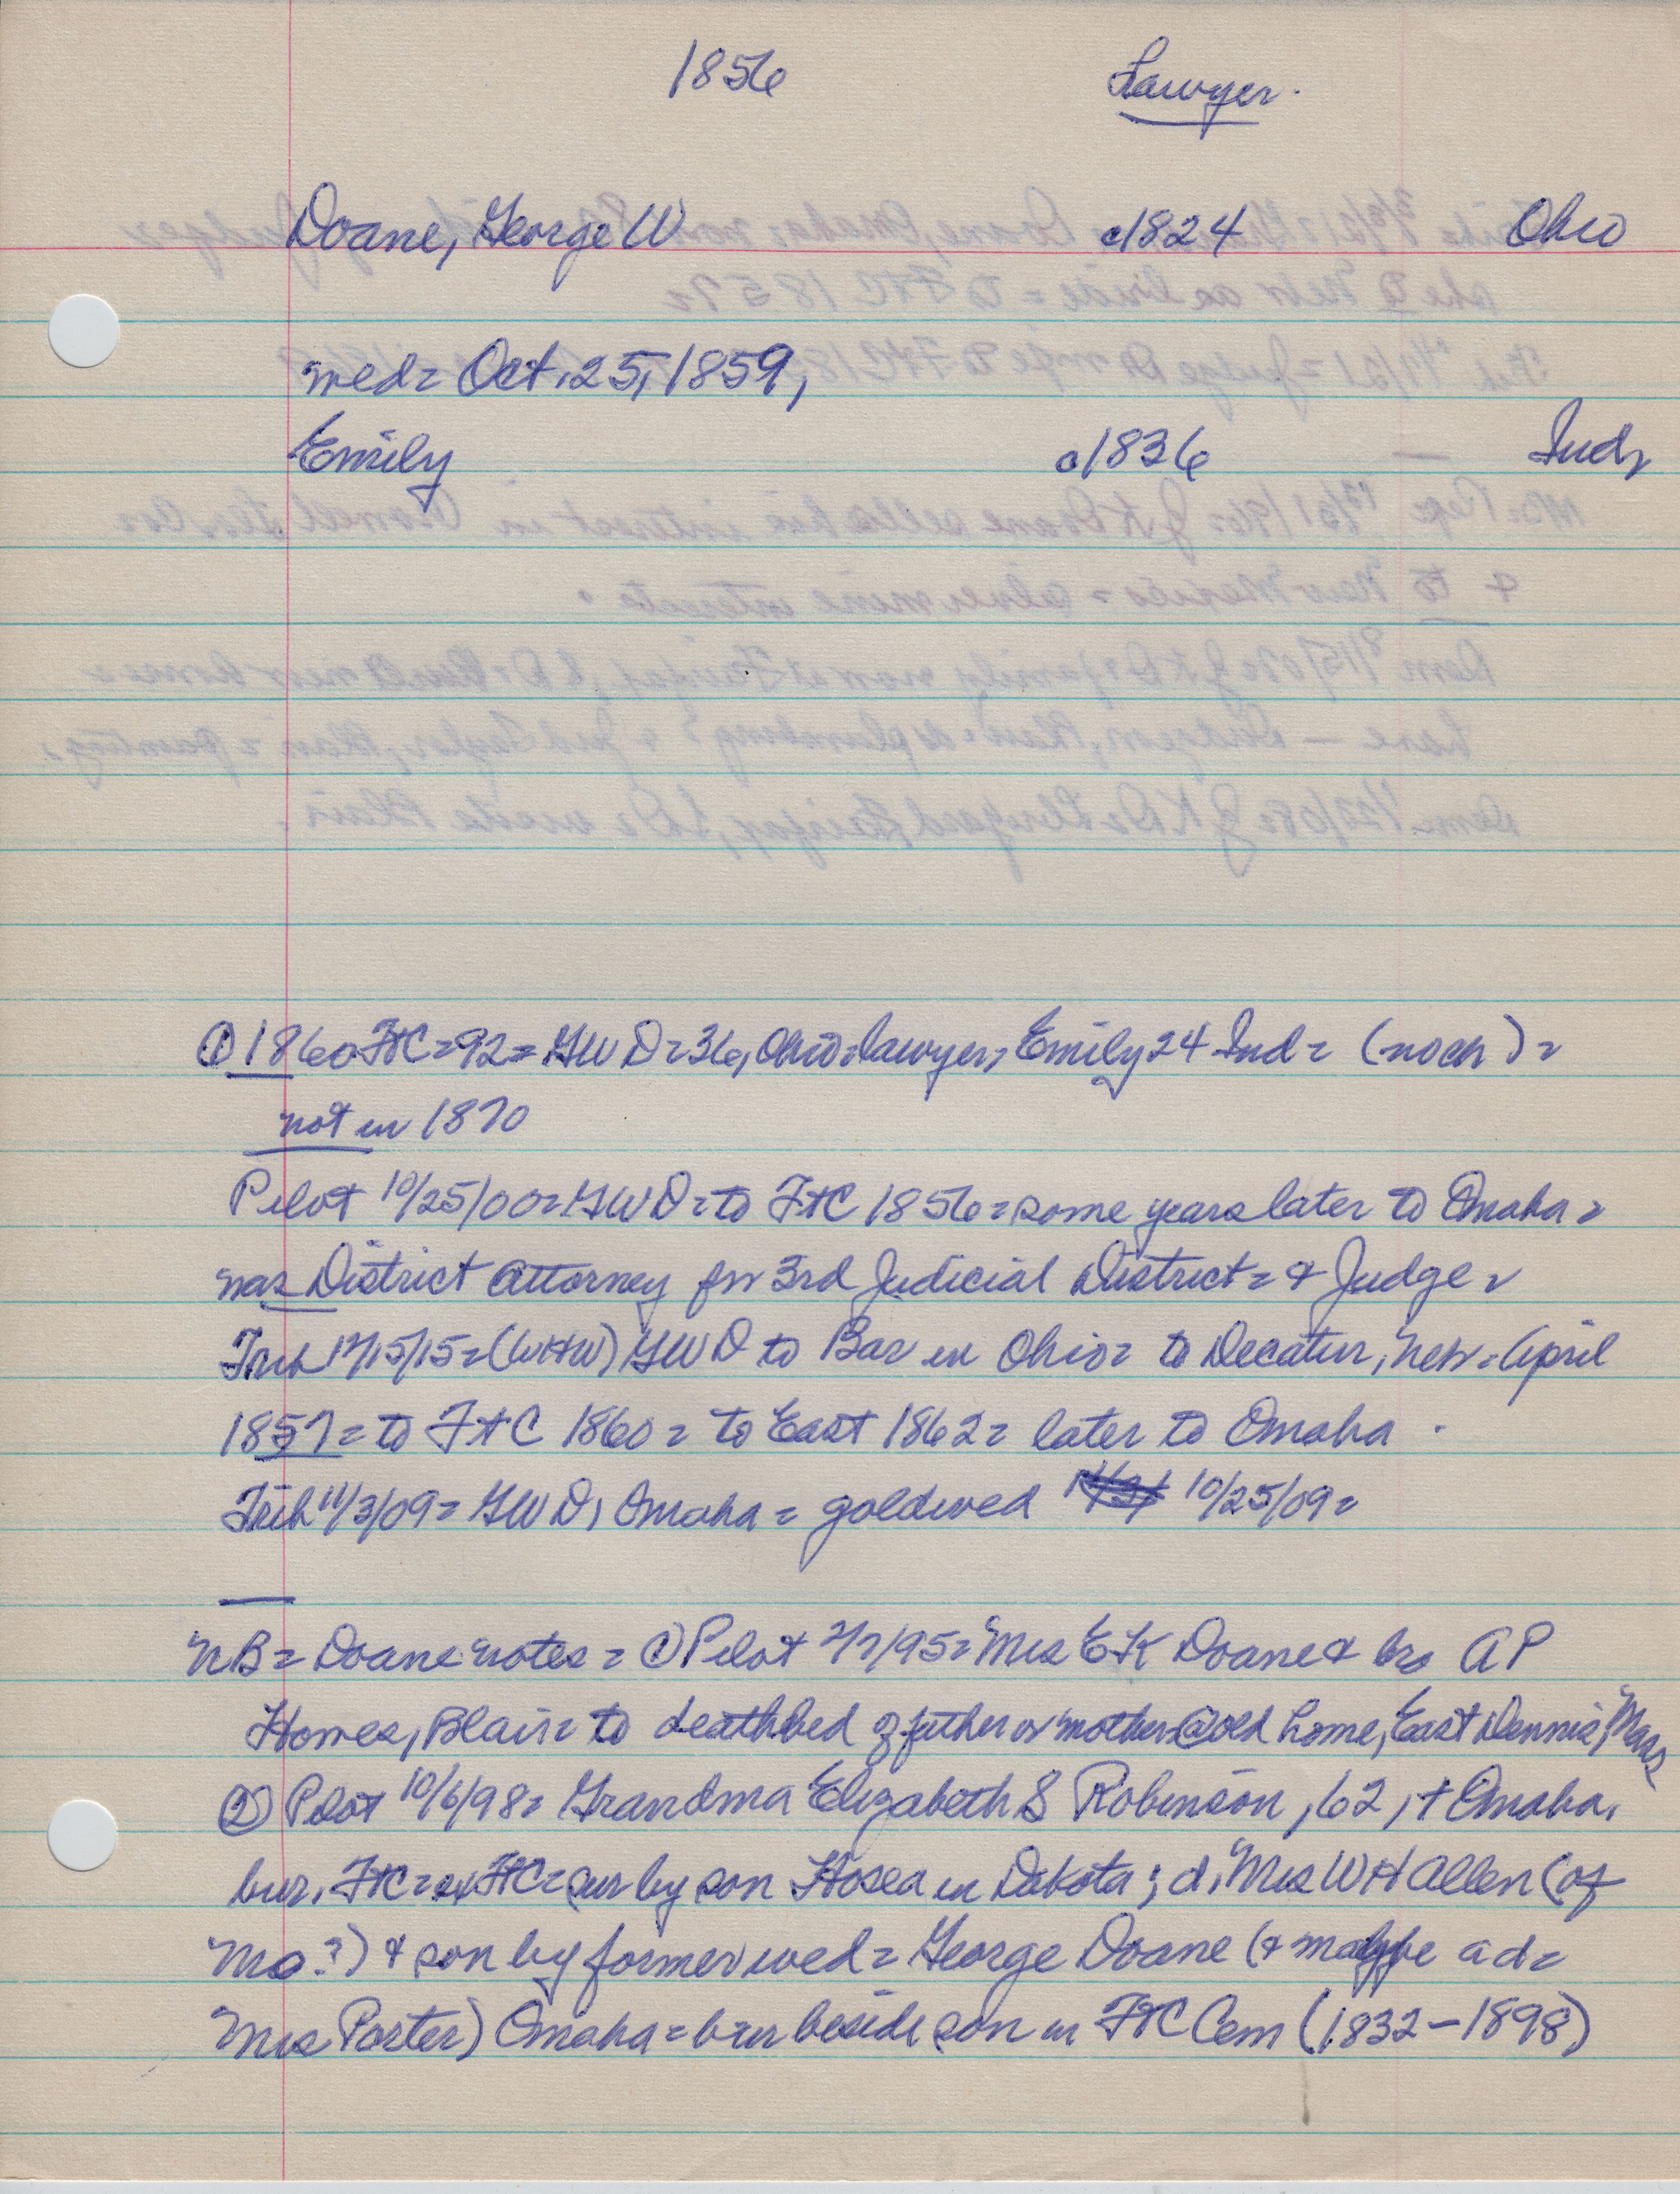 1856 Lawyer.
Doane, George W c1824 Ohio
wed= Oct. 25, 1859,
Emily c1836 — Ind=
① 1860 FtC=92= GWD=36, Ohio=lawyer, Emily 24 Ind= (no ch)=
not in 1870
Pilot 10/25/00= GWD= to FtC 1856= some years later to Omaha=
was District Attorney for 3rd Judicial District= & Judge=
Trib 12/15/15= (WHW) GWD to Bar in Ohio= to Decatur, Neb= April
1857= to FtC 1860= to East 1862= later to Omaha.
Trib 11/3/09= GWD, Omaha= goldwed 10/25/09=
NB= Doane notes= ① Pilot 2/7/95= Mrs EK Doane & bro AP
Howes, Blair= to deathbed of father or mother @ old home, East Dennis, Mass
② Pilot 10/6/98= Grandma Elizabeth S Robinson, 62, + Omaha,
bur. FtC= ex FtC= sur by son Hosea in Dakota; d, Mrs WH Allen (of
Mo?) & son by former wed= George Doane (& maybe a d=
Mrs Porter) Omaha= bur beside son in FtC Cem (1832–1898)